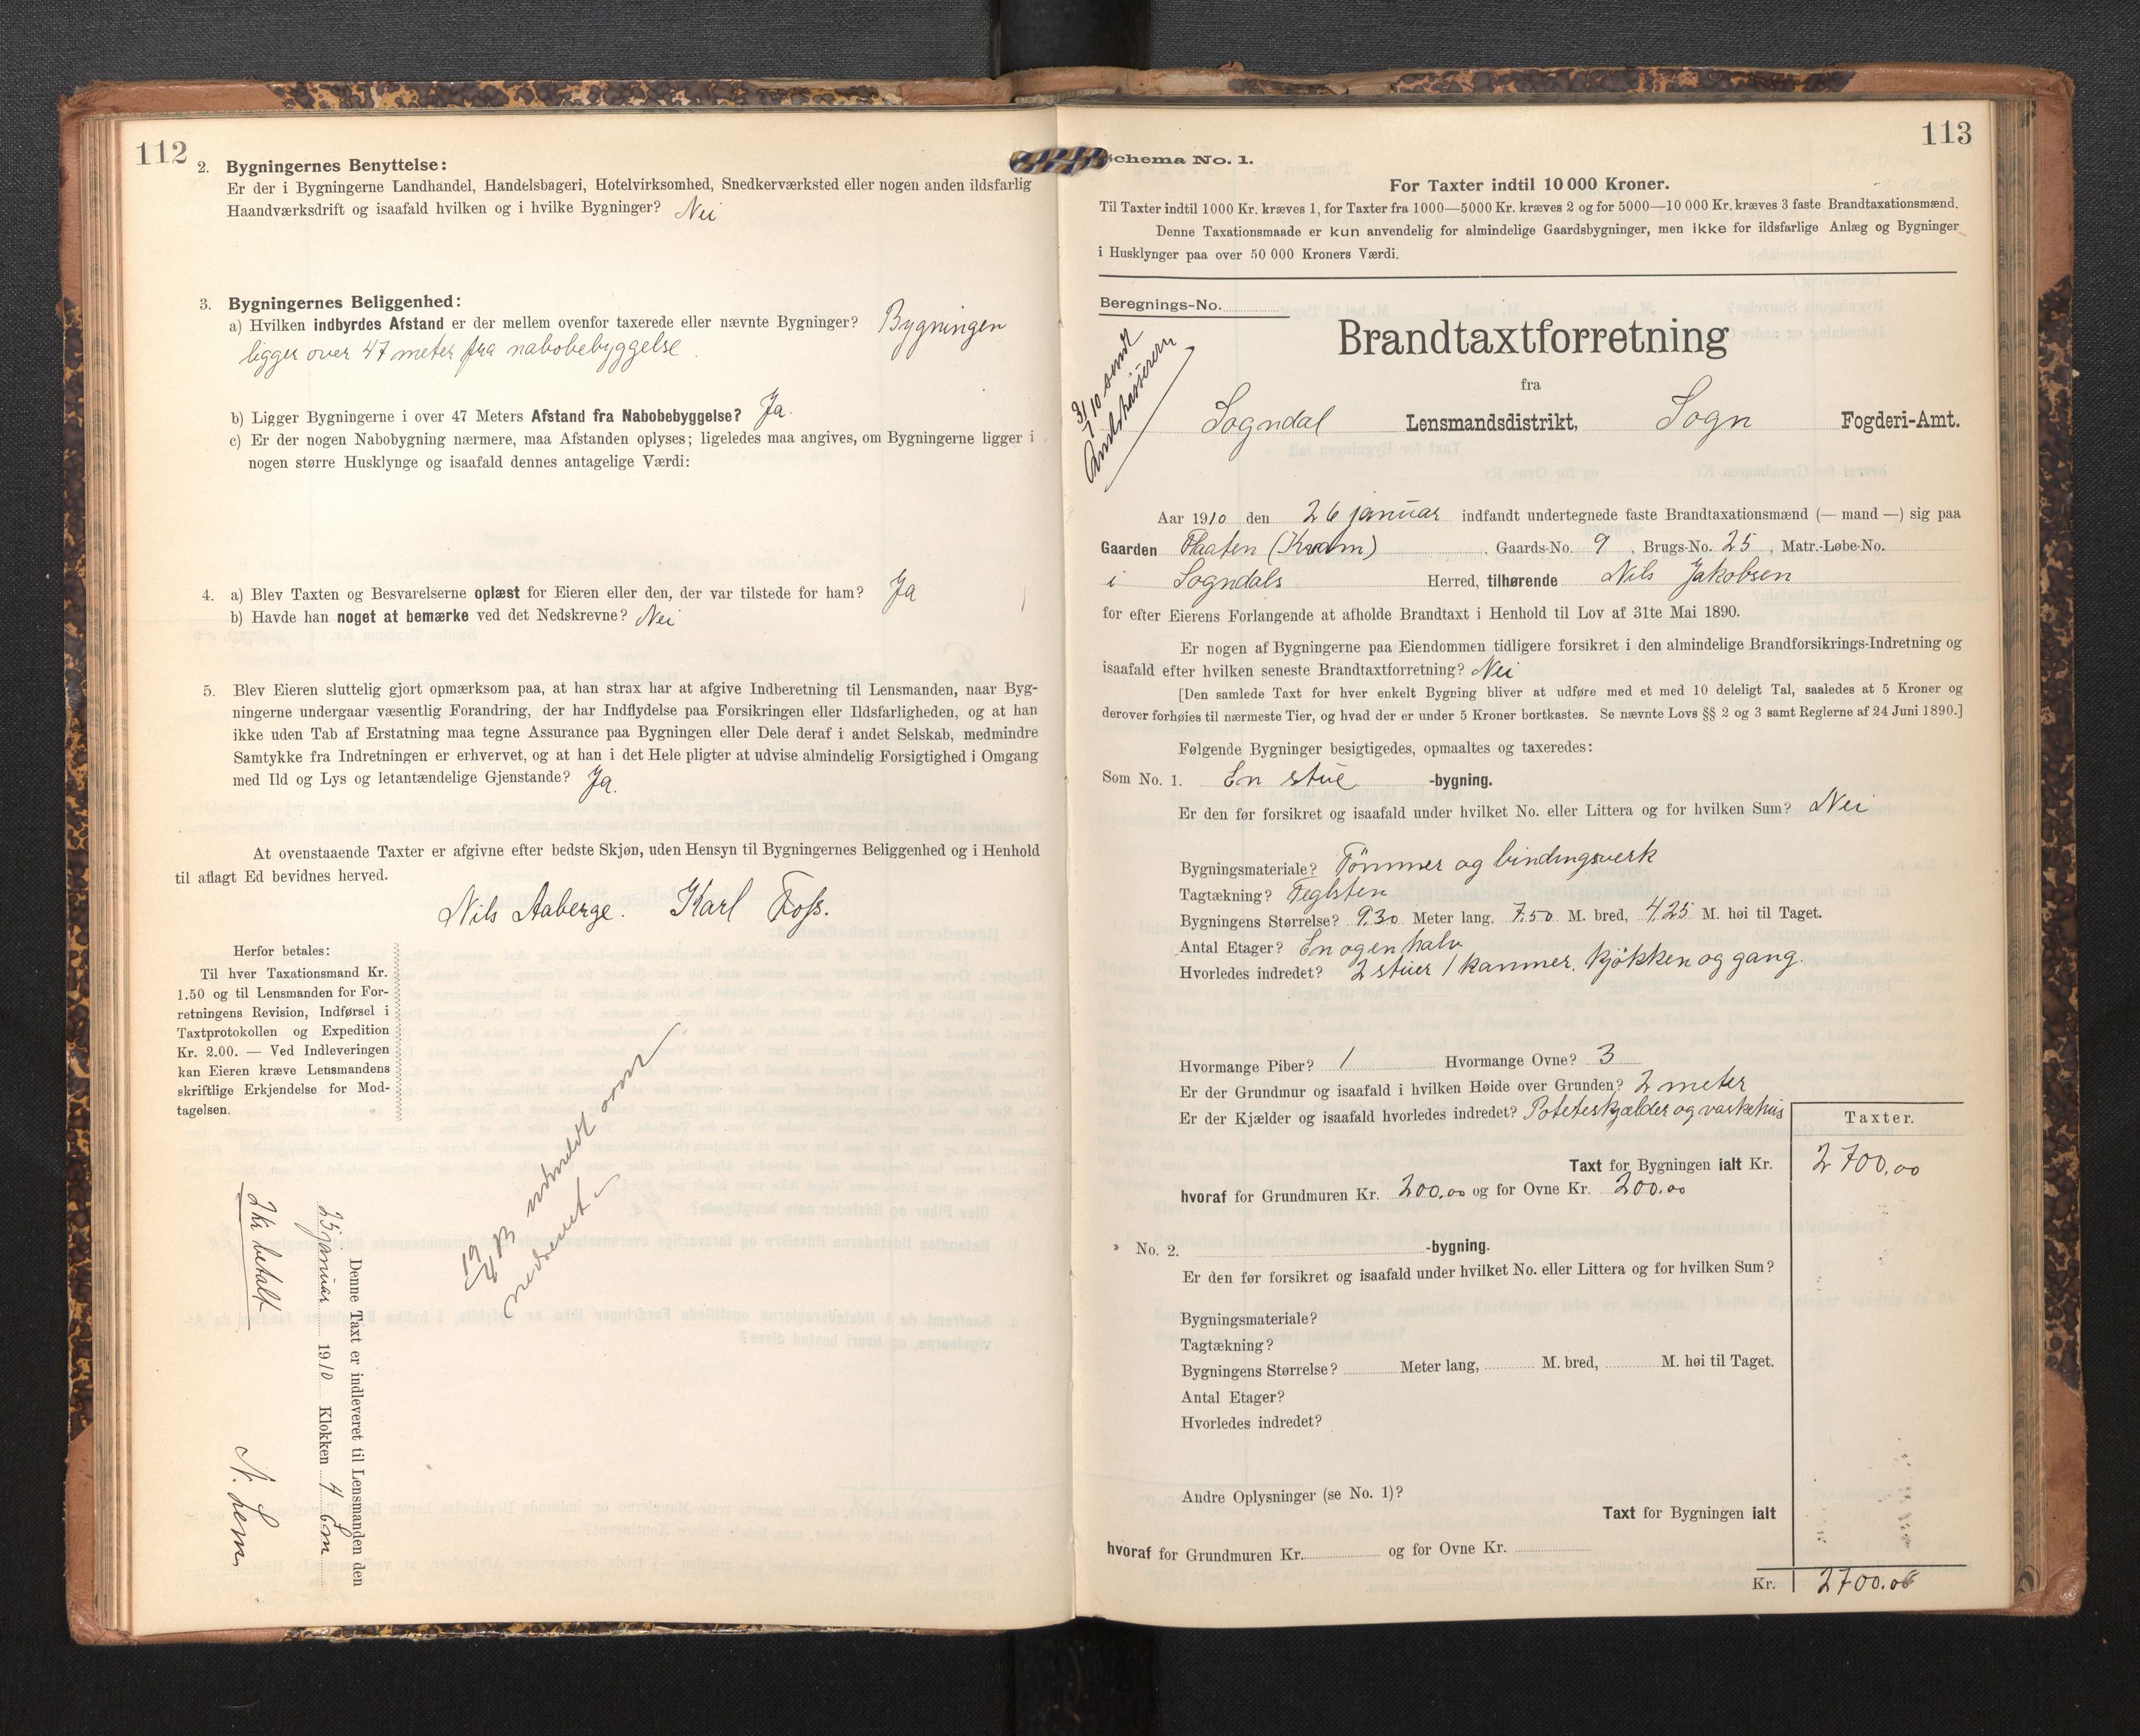 112
2. Bygningernes Benyttelse:
Er der i Bygningerne Landhandel, Handelsbageri, Hotelvirksomhed, Snedkerværksted eller nogen anden ildsfarlig
Haandværksdrift og isaafald hvilken og i hvilke Bygninger? Nei
3. Bygningernes Beliggenhed:
a) Hvilken indbyrdes Afstand er der mellem ovenfor taxerede eller nævnte Bygninger? Bygningen
ligger over 47 meter fra nabobebyggelse.
b) Ligger Bygningerne i over 47 Meters Afstand fra Nabobebyggelse? Ja.
c) Er der nogen Nabobygning nærmere, maa Afstanden oplyses; ligeledes maa angives, om Bygningerne ligger i
nogen større Husklynge og isaafald dennes antagelige Værdi:
4. a) Blev Taxten og Besvarelserne oplæst for Eieren eller den, der var tilstede for ham? Ja
b) Havde han noget at bemærke ved det Nedskrevne? Nei
5. Blev Eieren sluttelig gjort opmærksom paa, at han strax har at afgive Indberetning til Lensmanden, naar Byg-
ningerne undergaar væsentlig Forandring, der har Indflydelse paa Forsikringen eller Ildsfarligheden, og at han
ikke uden Tab af Erstatning maa tegne Assurance paa Bygningen eller Dele deraf i andet Selskab, medmindre
Samtykke fra Indretningen er erhvervet, og at han i det Hele pligter at udvise almindelig Forsigtighed i Omgang
med Ild og Lys og letantændelige Gjenstande? Ja.
At ovenstaaende Taxter er afgivne efter bedste Skjøn, uden Hensyn til Bygningernes Beliggenhed og i Henhold
til aflagt Ed bevidnes herved.
Nils Aaberge. Karl Foss.
Herfor betales:
Til hver Taxationsmand Kr.
1.50 og til Lensmanden for For-
retningens Revision, Indførsel i
Taxtprotokollen og Expedition
Kr. 2.00. — Ved Indleveringen
kan Eieren kræve Lensmandens
skriftlige Erkjendelse for Mod-
tagelsen.
nedrevet
Denne Taxt er indleveret til Lensmanden den
januar 1910 Klokken 4 Em
2 kr betalt
N. Lem
113
Schema No. 1.
For Taxter indtil 10 000 Kroner.
Til Taxter indtil 1000 Kr. kræves 1, for Taxter fra 1000—5000 Kr. kræves 2 og for 5000—10 000 Kr. kræves 3 faste Brandtaxationsmænd.
Denne Taxationsmaade er kun anvendelig for almindelige Gaardsbygninger, men ikke for ildsfarlige Anlæg og Bygninger
i Husklynger paa over 50 000 Kroners Værdi.
Beregnings-No.
3/10 sendt
Brandtaxtforretning
fra
Sogndal Lensmandsdistrikt, Sogn Fogderi-Amt.
Aar 1910 den 26 januar indfandt undertegnede faste Brandtaxationsmænd (— mand —) sig paa
Gaarden Flaaten (Kvam), Gaards-No. 9, Brugs-No. 25, Matr.-Løbe-No.
i Sogndals Herred, tilhørende Nils Jakobsen
for efter Eierens Forlangende at afholde Brandtaxt i Henhold til Lov af 31te Mai 1890.
Er nogen af Bygningerne paa Eiendommen tidligere forsikret i den almindelige Brandforsikrings-Indretning og
isaafald efter hvilken seneste Brandtaxtforretning? Nei
[Den samlede Taxt for hver enkelt Bygning bliver at udføre med et med 10 deleligt Tal, saaledes at 5 Kroner og
derover forhøies til nærmeste Tier, og hvad der er under 5 Kroner bortkastes. Se nævnte Lovs §§ 2 og 3 samt Reglerne af 24 Juni 1890.]
Følgende Bygninger besigtigedes, opmaaltes og taxeredes:
Som No. 1. En stue -bygning.
Er den før forsikret og isaafald under hvilket No. eller Littera og for hvilken Sum? Nei
Bygningsmateriale? Tømmer og bindingsverk
Tagtækning? Teglsten
Bygningens Størrelse? 9.30 Meter lang, 7.50 M. bred, 4.25 M. høi til Taget.
Antal Etager? En og en halv
Hvorledes indredet? 2 stuer 1 kammer, kjøkken og gang.
Hvormange Piber? 1 Hvormange Ovne? 3
Er der Grundmur og isaafald i hvilken Høide over Grunden? 2 meter
Er der Kjælder og isaafald hvorledes indredet? Poteteskjælder og vaskehus
Taxter.
Taxt for Bygningen ialt Kr. 2700.00
hvoraf for Grundmuren Kr. 200.00 og for Ovne Kr. 200.00
» No. 2. -bygning.
Er den før forsikret og isaafald under hvilket No. eller Littera og for hvilken Sum?
Bygningsmateriale?
Tagtækning?
Bygningens Størrelse? Meter lang, M. bred, M. høi til Taget.
Antal Etager?
Hvorledes indredet?
Andre Oplysninger (se No. 1)?
Taxt for Bygningen ialt
hvoraf for Grundmuren Kr. og for Ovne Kr.
Kr. 2700.00